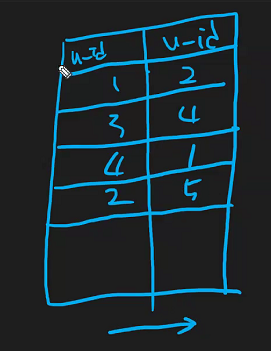 u-id u-id
1 2
3 4
4 1
2 5